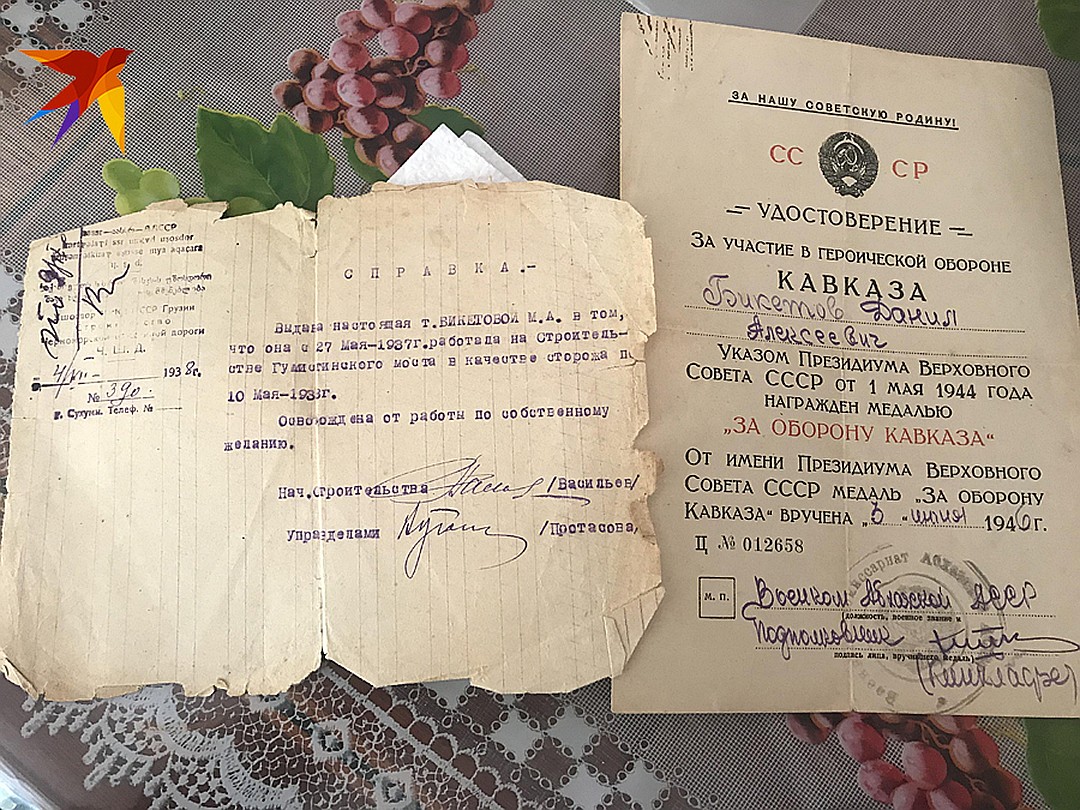 АССР
Ч.Ж.Д.
НКВД ССР Грузии
Черноморской жел. дороги
- Ч.Ж.Д. -
4/VII- 1938г.
№ 390.
г. Сухуми. Телеф. №
СПРАВКА.-
Выдана настоящая т.БИКЕТОВОЙ М.А. в том,
что она с 27 Мая-1937г.работала на Строитель-
стве Гумистинского моста в качестве сторожа по
10 Мая-1938г.
Освобождена от работы по собственному
желанию.
Нач.Строительства /Васильев/
Управделами /Протасова/
ЗА НАШУ СОВЕТСКУЮ РОДИНУ!
СС СР
УДОСТОВЕРЕНИЕ
ЗА УЧАСТИЕ В ГЕРОИЧЕСКОЙ ОБОРОНЕ
КАВКАЗА
Бикетов Данил
Алексеевич
УКАЗОМ ПРЕЗИДИУМА ВЕРХОВНОГО
СОВЕТА СССР ОТ 1 МАЯ 1944 ГОДА
НАГРАЖДЕН МЕДАЛЬЮ
„ЗА ОБОРОНУ КАВКАЗА“
ОТ ИМЕНИ ПРЕЗИДИУМА ВЕРХОВНОГО
СОВЕТА СССР МЕДАЛЬ „ЗА ОБОРОНУ
КАВКАЗА“ ВРУЧЕНА „3“ июня 1946г.
Ц № 012658
М. П.
Военком Абхазской АССР
(должность, военное звание и
Подполковник
подпись лица, вручившего медаль)